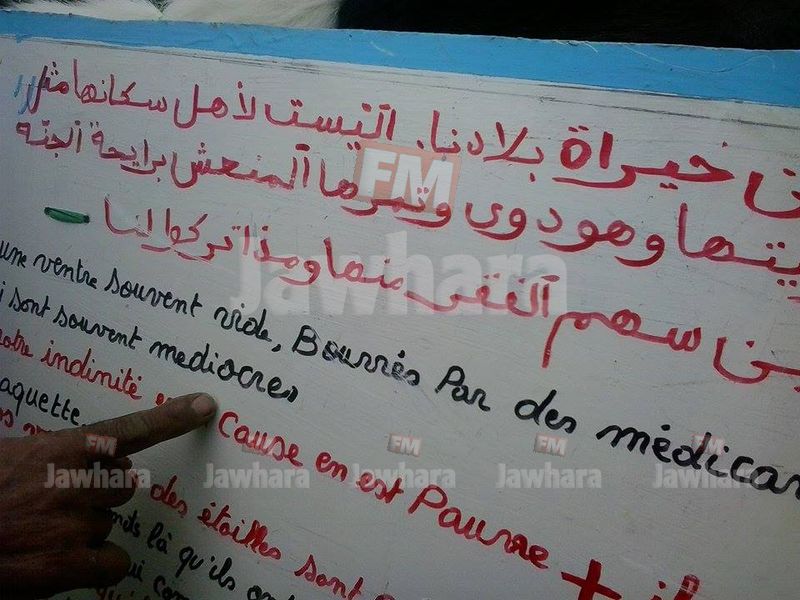 خيراة بلادنا. أليست لأهل سكانها مثل
يتها وهودوى وتمرها المنعش برايحة الجنة
ين سهم الفقر منها ومذا تركوا لنا -
une ventre souvent vide, Bourrés Par des médica
i sont souvent mediocres
notre indinité e cause en est Pauvre + il
aquette.
des étoilles sont
là qu'ils on
qui com
FM
Jawhara
FM FM FM FM
Jawhara Jawhara Jawhara Jawhara Jawhara